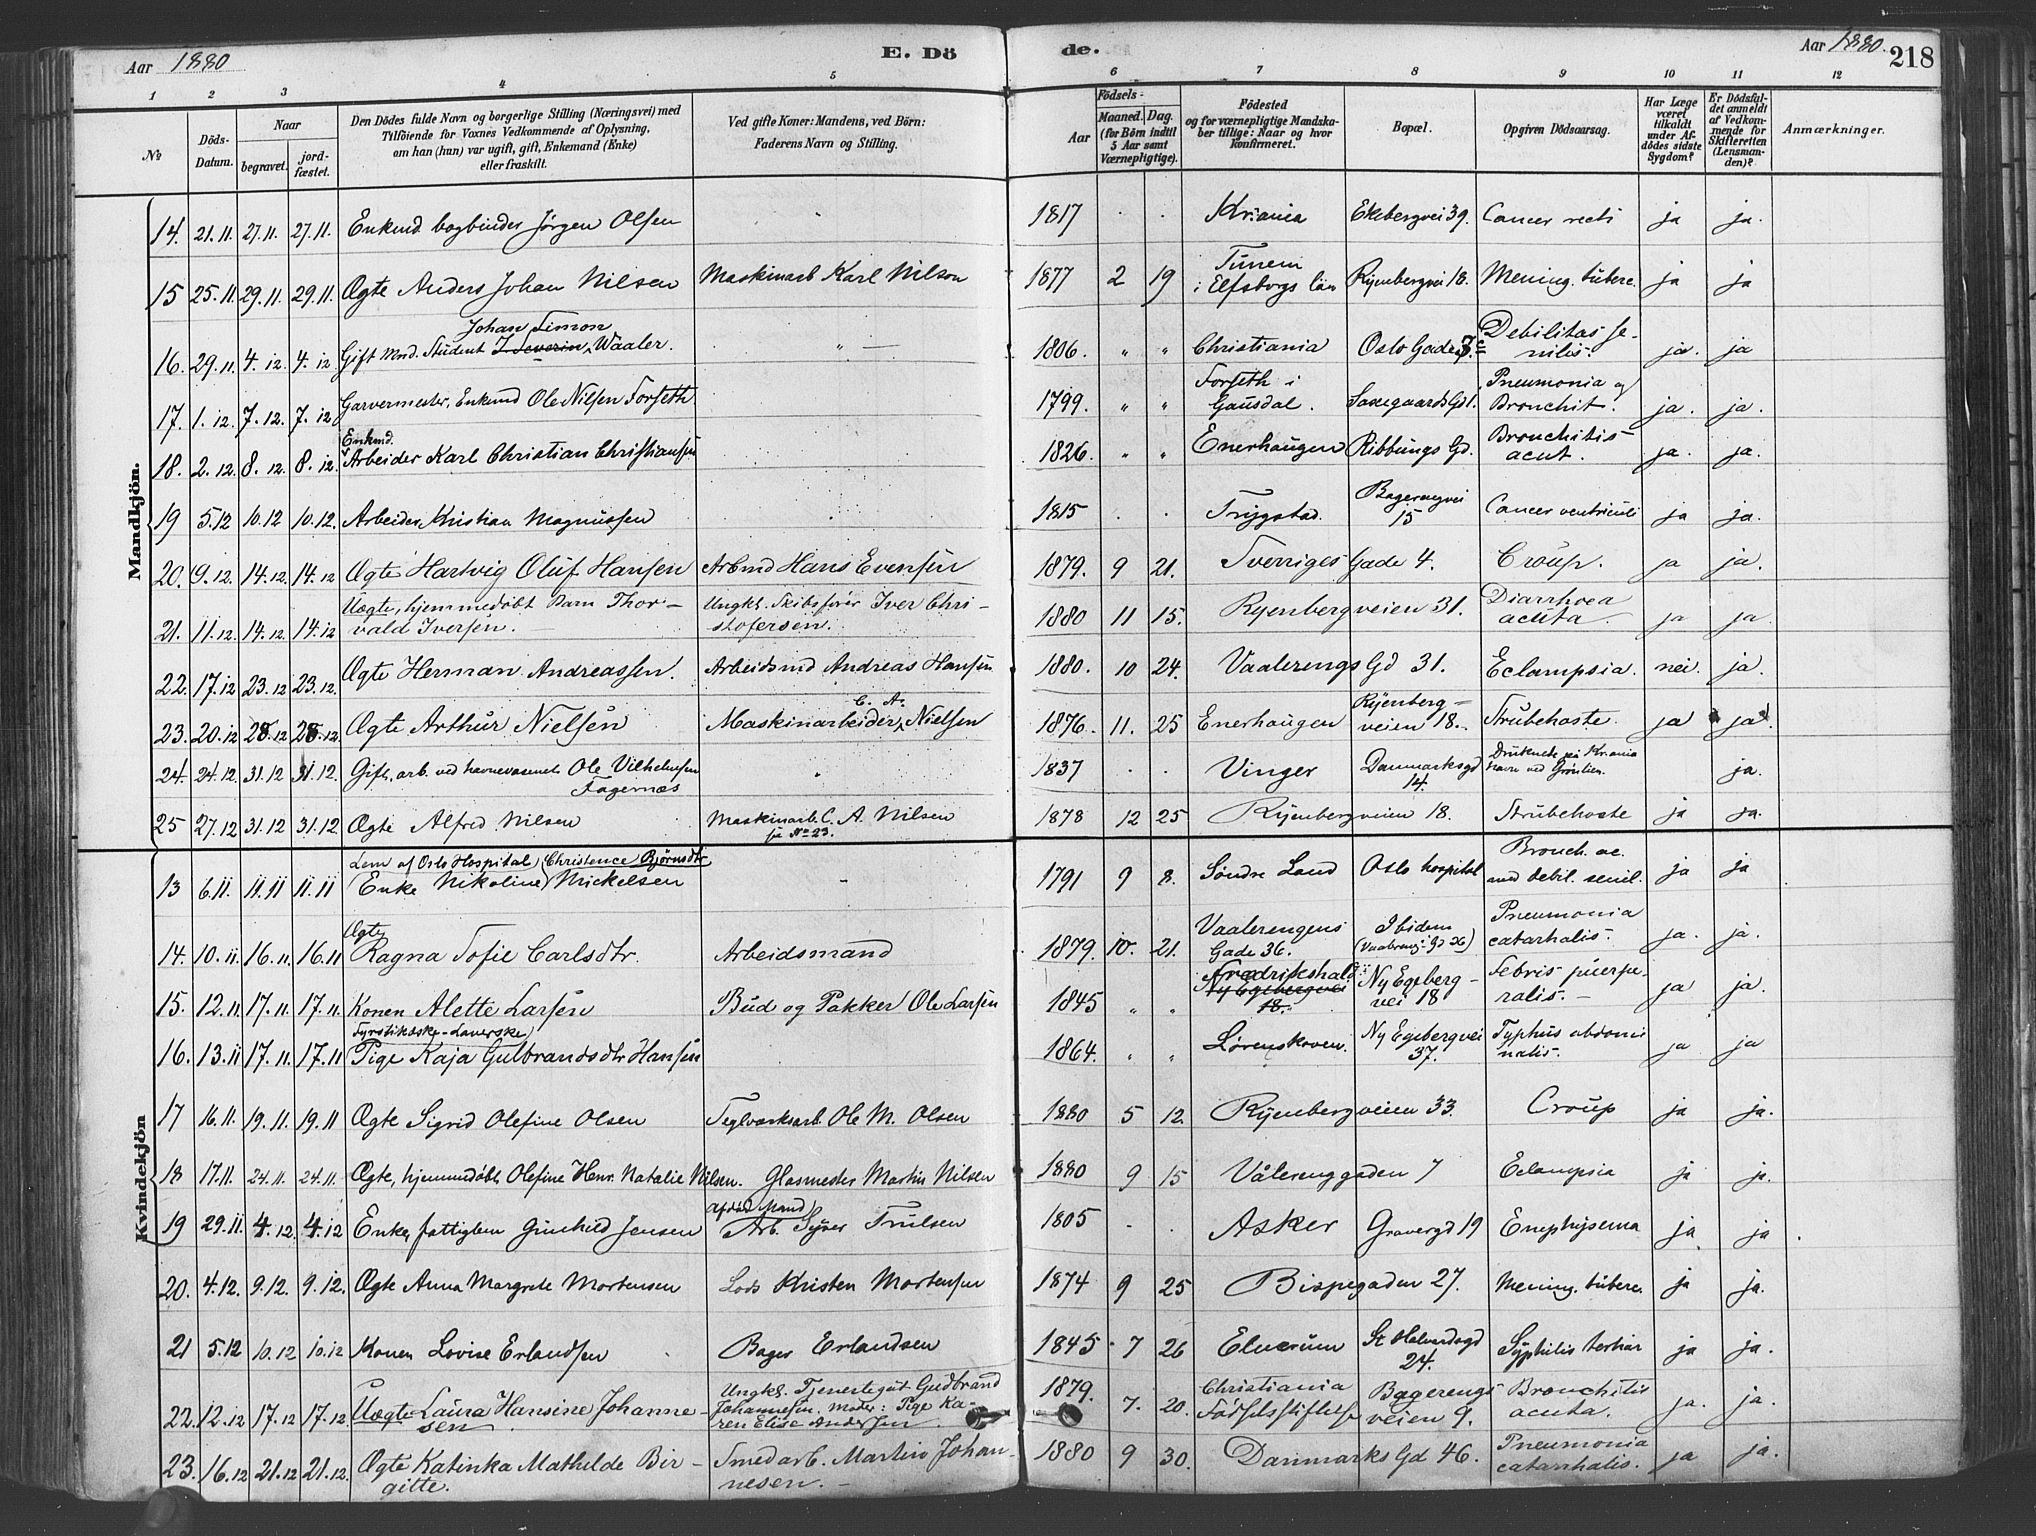 Aar 1880 E. Dö de. Aar 1880. 218
1 2 3 4 5 6 7 8 9 10 11 12
№ Döds-Datum. Naar begravet. jordfæstet. Den Dödes fulde Navn og borgerlige Stilling (Næringsvei) med Tilföiende for Voxnes Vedkommende af Oplysning, om han (hun) var ugift, gift, Enkemand (Enke) eller fraskilt. Ved gifte Koner: Mandens, ved Börn: Faderens Navn og Stilling. Födsels- Aar Maaned. Dag. (for Börn indtil 5 Aar samt Værnepligtige). Födested og for værnepligtige Mandskaber tillige: Naar og hvor konfirmeret. Bopæl. Opgiven Dödsaarsag. Har Læge været tilkaldt under Afdödes sidste Sygdom? Er Dödsfaldet anmeldt af Vedkommende for Skifteretten (Lensmanden)? Anmærkninger.
Mandkjön.
14. 21.11. 27.11. 27.11. Enkmd. bogbinder Jörgen Olsen 1817 . . Kr:ania Ekebergvei 39. Cancer recti ja ja.
15 25.11. 29.11. 29.11. Ægte Anders Johan Nilsen Maskinarb Karl Nilson 1877 2 19 Tunem i Elfsborgs län Ryenbergvei 18. Mening. tuberc. ja ja
16. 29.11. 4.12 4.12 Gift Mnd. Student J. Severin Johan Simon Waaler. " — 1806. " " Christiania Oslo Gade 7. Debilitas senilis. ja. ja
17. 1.12. 7.12. 7.12 Garvermester, Enkemd Ole Nilsen Forseth 1799. " " Forseth i Gausdal. Saxegaards Gd 1. Pneumonia og Bronchit. ja. ja.
18. 2.12. 8.12. 8.12. Enkmd. Arbeider Karl Christian Christiansen 1826. " " Enerhaugen Ribbungs Gd. Bronchitis acut. ja. ja.
19 5.12 10.12 10.12. Arbeider Kristian Magnussen 1815 . . Trygstad. Bagerengvei 15 Cancer ventriculi ja ja.
20. 9.12. 14.12 14.12 Ægte Hartvig Oluf Hansen Arbmd Hans Evensen 1879. 9 21. Sverriges Gade 4. Croup. ja ja.
21. 11.12. 14.12. 14.12 Uægte, hjemmedöbt Barn Thorvald Iversen. Ungkl. Skibsförer Iver Christofersen. 1880 11 15. Ryenbergveien 31. Diarrhoea acuta. ja ja.
22. 17.12 23.12 23.12. Ægte Herman Andreassen. Arbeidsmd Andreas Hansen 1880. 10 24. Vaalerengs Gd 31. Eclampsia. nei. ja.
23. 20.12 28.12 28.12. Ægte Arthur Nielsen Maskinarbeider C. A. Nielsen 1876. 11. 25 Enerhaugen Ryenbergveien 18. Strubehoste. ja ja.
24. 24.12. 31.12 31.12. Gift, arb. ved havnevæsenet Ole Vilhelmsen Fagernæs " 1837 . . Vinger Danmarksgd 14. Druknede på Kr.ania havn ved Grönlien. ja.
25 27.12 31.12 31.12 Ægte Alfred Nilsen Maskinarb. C. A. Nilsen jf No 23. 1878 12 25 Ryenbergveien 18. Strubehoste ja ja.
Kvindekjön
13 6.11. 11.11 11.11 Lem af Oslo Hospital, Enke Nikoline (Christence Björnsdtr Mickelsen - 1791 9 8. Söndre Land Oslo hospital Bronch. ac. med debil. senil. ja ja
14. 10.11. 16.11. 16.11 Ægte Ragna Sofie Carlsdtr. Arbeidsmand 1879. 10. 21. Vaalerengens Gade 36. Ibidem (Vaalereng: Gd 26) Pneumonia catarhalis. ja. ja.
15. 12.11 17.11. 17.11. Konen Alette Larsen Bud og Pakker Ole Larsen 1845 " " Fredrikshald Ny Egebergvei 18. Ny Egebergvei 18 Febris puerperalis. — ja ja.
16. 13.11 17.11. 17.11 Fyrstikæske-Laverske Pige Kaja Gulbrandsdtr Hansen 1864. " " Lörenskoven. Ny Egebergvei 37. Typhus abdominalis. ja ja
17 16.11. 19.11. 19.11 Ægte Sigrid Olefine Olsen Teglværksarb. Ole M. Olsen 1880 5 12. Ryenbergveien 33. Croup ja ja.
18 17.11. 24.11. 24.11. Ægte, hjemmedöbt Olefine Henr. Natalie Nilsen. Glasmester Martin Nilsen 1880 9 15 Vålerenggaden 7 Eclampsia ja ja.
19 29.11. 4.12. 4.12 Enke, fattiglem Gunhild Jensen Afdöd Mand Arb. Syver Trulsen 1805 . . Asker Gravergd 19 Emphysema ja ja
20. 4.12. 9.12. 9.12. Ægte Anna Margrete Mortensen Lods Kristen Mortensen 1874 9 25 Bispegaden 27. Mening. tuberc. ja ja.
21 5.12 10.12 10.12 Konen Lovise Erlandsen Bager Erlandsen 1845 7 26 Elverum St Halvardsgd 24. Syphilis tertiær ja ja.
22. 12.12 17.12 17.12. Uægte Laura Hansine Johannesen. Ungkl. Tjenestegut Gudbrand Johannesen. Moder: Pige Karen Elise Andersen. 1879. 7. 20. Christiania Födselsstiftelse Bagerengsveien 9. Bronchitis acuta. ja. ja.
23. 16.12 21.12 21.12. Ægte Katinka Mathilde Birgitte. Smedarb. Martin Johannesen. — 1880 9 30. Danmarks Gd 46. Pneumonia catarrhalis. ja ja.